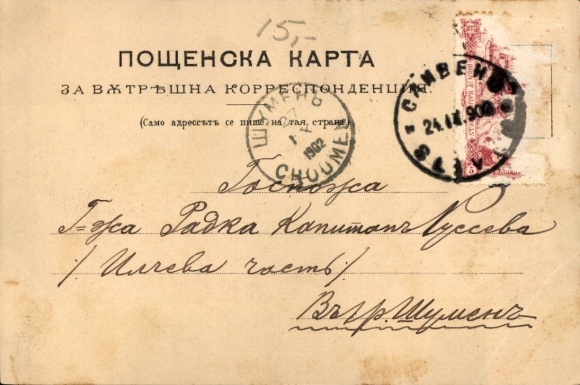 15,-
ПОЩЕНСКА КАРТА
ЗА ВѪТРѢШНА КОРРЕСПОНДЕНЦИЯ.
(Само адрессътъ се пише на тая страна)
ШУМЕНЪ
1902
CHOUMEN
СЛИВЕНЪ
24.IX.902
Госпожа
Г=жа Радка Капитанъ Русева
/ Илчева часть /
Въ гр. Шуменъ